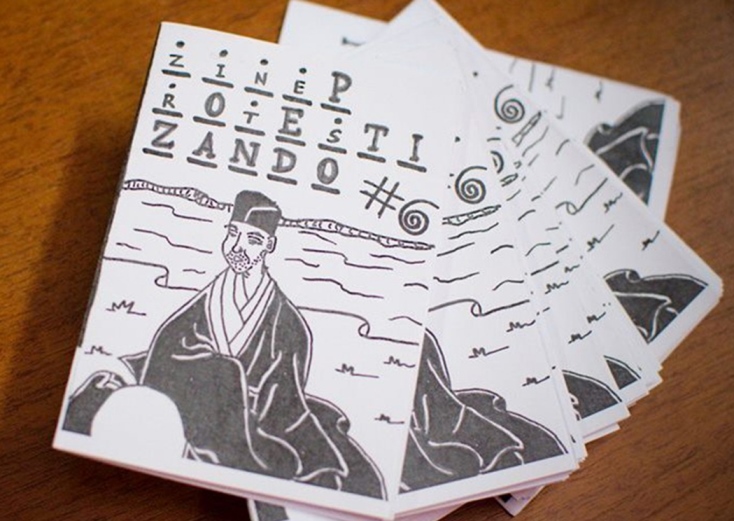 ZINEP
ROTESTI
ZANDO #6
6
6